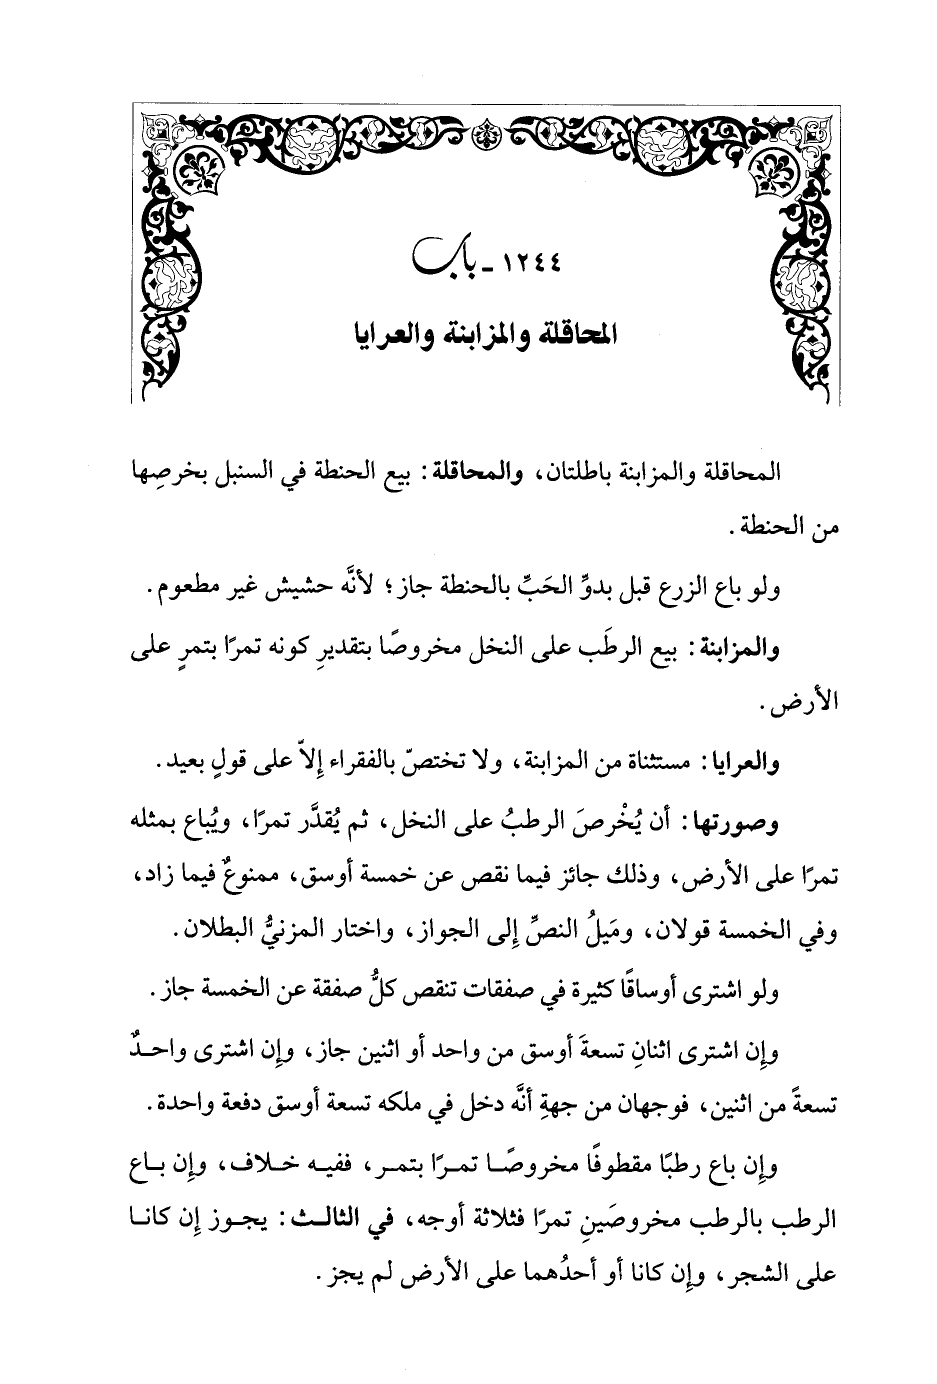 ١٢٤٤ - باب
المحاقلة والمزابنة والعرايا
المحاقلة والمزابنة باطلتان، والمحاقلة: بيع الحنطة في السنبل بخرصِها
من الحنطة.
ولو باع الزرع قبل بدوِّ الحَبِّ بالحنطة جاز؛ لأنَّه حشيش غير مطعوم.
والمزابنة: بيع الرطَب على النخل مخروصًا بتقديرِ كونه تمرًا بتمرٍ على
الأرض.
والعرايا: مستثناة من المزابنة، ولا تختصّ بالفقراء إلاّ على قولٍ بعيد.
وصورتها: أن يُخْرصَ الرطبُ على النخل، ثم يُقدَّر تمرًا، ويُباع بمثله
تمرًا على الأرض، وذلك جائز فيما نقص عن خمسة أوسق، ممنوعٌ فيما زاد،
وفي الخمسة قولان، ومَيلُ النصِّ إلى الجواز، واختار المزنيُّ البطلان.
ولو اشترى أوساقًا كثيرة في صفقات تنقص كلُّ صفقة عن الخمسة جاز.
وإن اشترى اثنانِ تسعةَ أوسق من واحد أو اثنين جاز، وإن اشترى واحـدٌ
تسعةً من اثنين، فوجهان من جهةِ أنَّه دخل في ملكه تسعة أوسق دفعة واحدة.
وإن باع رطبًا مقطوفًا مخروصًا تمـرًا بتمـر، ففيـه خـلاف، وإن بـاع
الرطب بالرطب مخروصَينِ تمرًا فثلاثة أوجه، في الثالـث: يجـوز إن كانـا
على الشجر، وإن كانا أو أحدُهما على الأرض لم يجز.